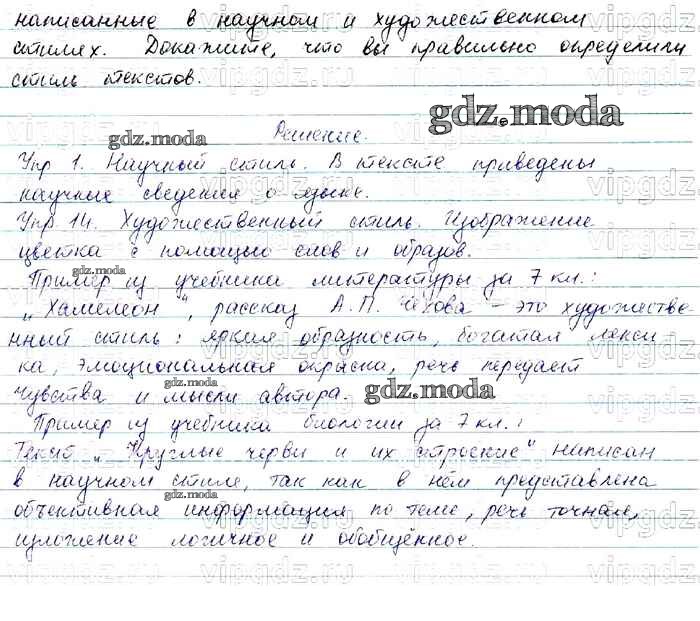 написанные в научном и художественном
стилях. Докажите, что вы правильно определили
стиль текстов.
gdz.moda
gdz.moda
Решение.
Упр 1. Научный стиль. В тексте приведены
научные сведения о языке.
Упр. 14. Художественный стиль. Изображение
цветка с помощью слов и образов.
gdz.moda
Пример из учебника литературы за 7 кл.:
„Хамелеон", рассказ А. П. Чехова – это художестве-
нный стиль: яркая образность, богатая лекси
ка, эмоциональная окраска, речь передаёт
gdz.moda
чувства и мысли автора.
gdz.moda
Пример из учебника биологии за 7 кл.:
Текст „Круглые черви и их строение" написан
в научном стиле, так как в нём представлена
gdz.moda
объективная информация по теме, речь точная,
изложение логичное и обобщённое.